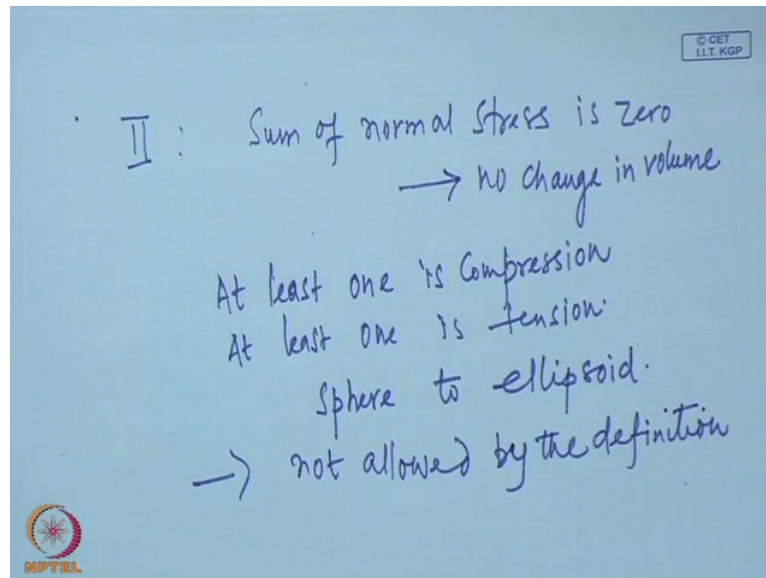 © CET
I.I.T. KGP
II : Sum of normal stress is zero
→ no change in volume
At least one is compression
At least one is tension.
Sphere to ellipsoid.
→ not allowed by the definition
NPTEL